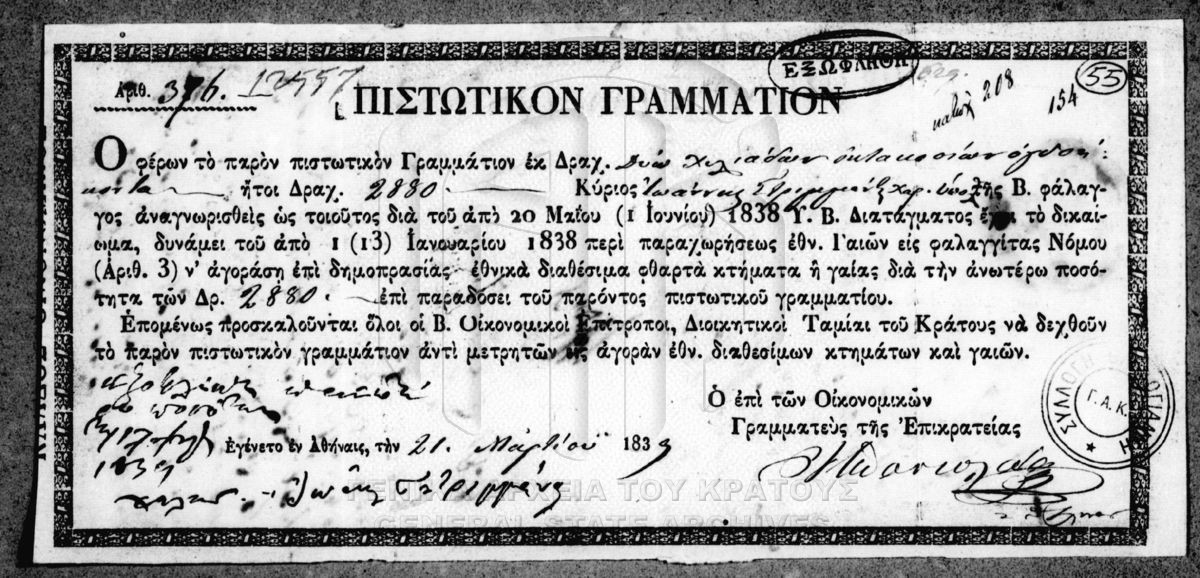 ΕΞΩΦΛΗΘΗ
55
Αριθ. 376. 12557
208
154
ΠΙΣΤΩΤΙΚΟΝ ΓΡΑΜΜΑΤΙΟΝ
Ο φέρων τὸ παρὸν πιστωτικὸν Γραμμάτιον ἐκ Δραχ. Δυὼ χιλιάδων ὀκτακοσίων ὀγδοή-
κοντα ἤτοι Δραχ. 2880 Κύριος Ἰωάννης τῆς Β. φάλαγ-
γος ἀναγνωρισθεὶς ὡς τοιοῦτος διὰ τοῦ ἀπὸ 20 Μαΐου (1 Ιουνίου) 1838 Υ. Β. Διατάγματος ἔχει τὸ δικαί-
ωμα, δυνάμει τοῦ ἀπὸ 1 (13) Ιανουαρίου 1838 περὶ παραχωρήσεως ἐθν. Γαιῶν εἰς φαλαγγίτας Νόμου
(Αριθ. 3) ν' ἀγοράση ἐπὶ δημοπρασίας ἐθνικὰ διαθέσιμα φθαρτὰ κτήματα ἢ γαίας διὰ τὴν ἀνωτέρω ποσό-
τητα τῶν Δρ. 2880. ἐπὶ παραδόσει τοῦ παρόντος πιστωτικοῦ γραμματίου.
Επομένως προσκαλοῦνται ὅλοι οἱ Β. Οἰκονομικοὶ Επίτροποι, Διοικητικοὶ Ταμίαι τοῦ Κράτους νὰ δεχθοῦν
τὸ παρὸν πιστωτικὸν γραμμάτιον ἀντὶ μετρητῶν εἰς ἀγορὰν ἐθν. διαθεσίμων κτημάτων καὶ γαιῶν.
Ὁ ἐπὶ τῶν Οἰκονομικῶν
Γραμματεὺς τῆς Ἐπικρατείας
Εγένετο ἐν Αθήναις, τὴν 21. Μαρτίου 1839
1839
ΣΥΛΛΟΓΗ
Γ.Α.Κ.
ΓΕΝΙΚΑ ΑΡΧΕΙΑ ΤΟΥ ΚΡΑΤΟΥΣ
GENERAL STATE ARCHIVES